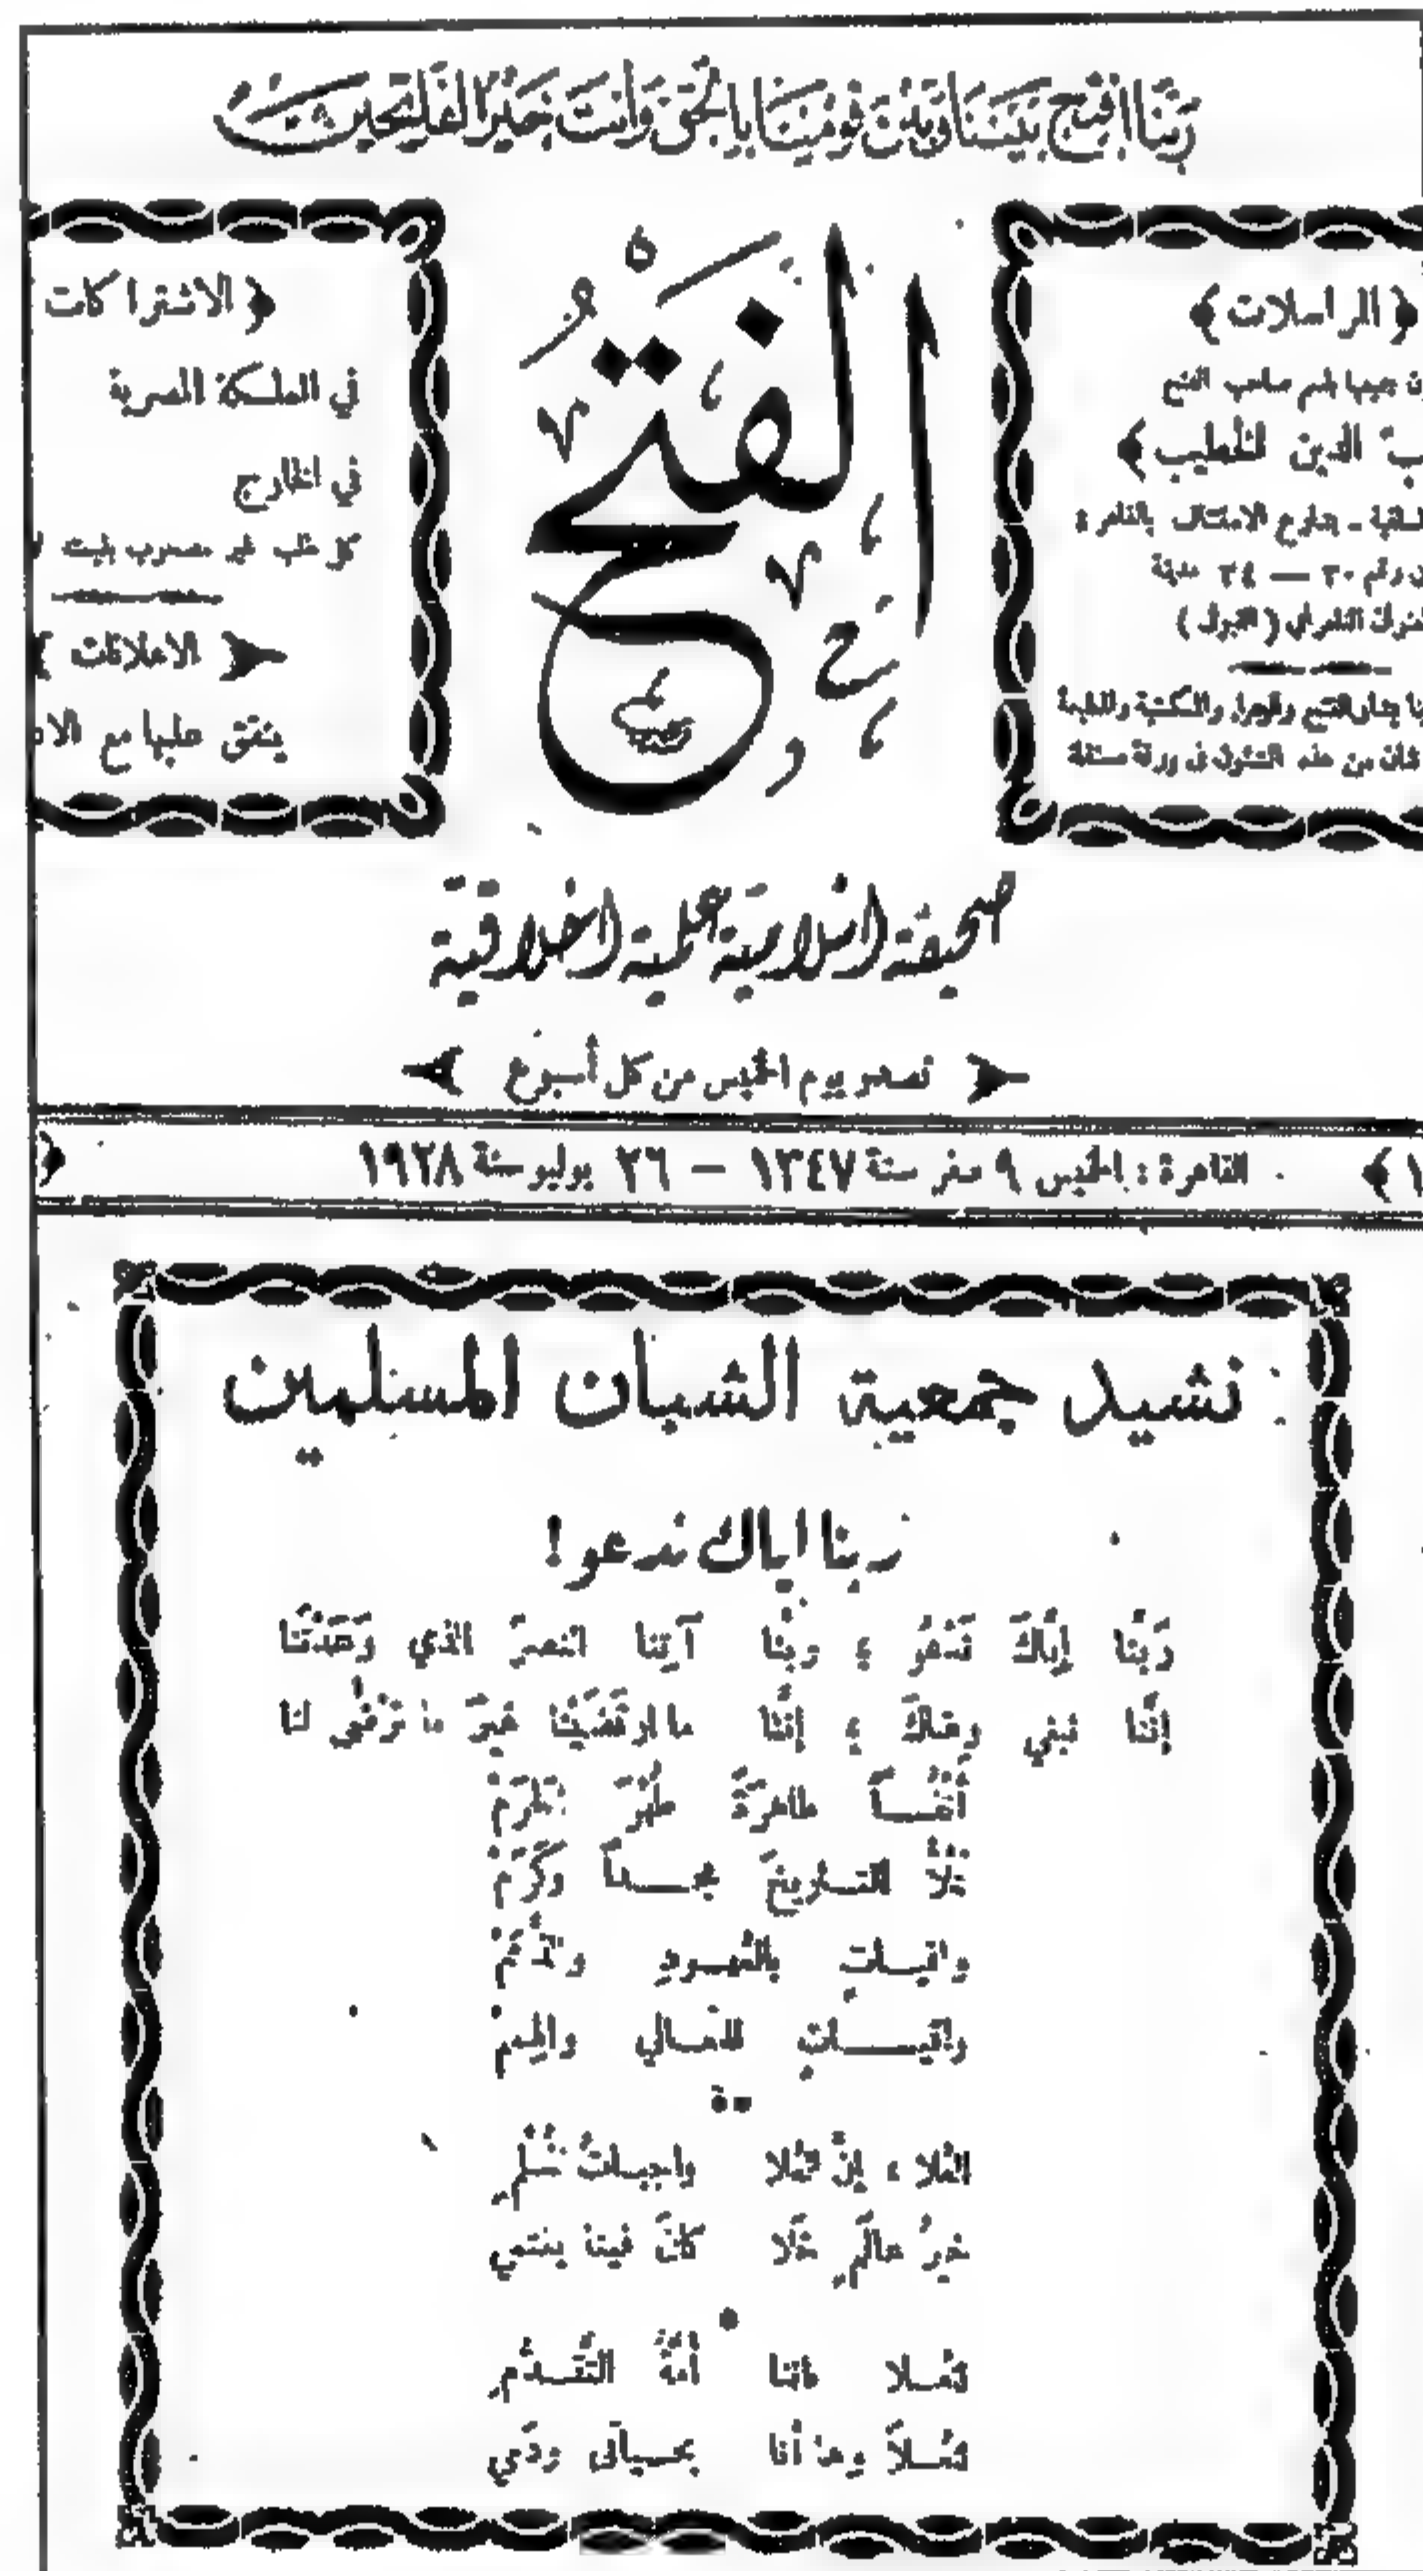 ربنا افتح بيننا وبين قومنا بالحق وأنت خير الفاتحين
﴿ المراسلات ﴾
جميعها باسم صاحب الفتح
الدين الخطيب ﴾
بشارع الاستئناف بالقاهرة
رقم ٣٠ — ٢٤ مدينة
التلغرافي ( )
الفتح والزهراء والمكتبة والمطبعة
من هذه الشئون في ورقة مستقلة
الفتح
﴿ الاشتراكات
في المملكة المصرية
في الخارج
كل طلب غير مصحوب بقيمته
الاعلانات
يتفق عليها مع
صحيفة اسلامية علمية اخلاقية
تصدر يوم الخميس من كل أسبوع
القاهرة : الخميس ٩ صفر سنة ١٣٤٧ — ٢٦ يوليو سنة ١٩٢٨
نشيد جمعية الشبان المسلمين
ربنا اياك ندعو !
رَبَّنا إِيَّاكَ نَدْعُو ؛ ربَّنا آتِنا النصرَ الذي وَعَدْتَنا
إِنَّنا نبغي رضاكَ ؛ إنَّنا ما ارتَضَيْنا غيرَ ما تَرْضى لنا
أَنْفُساً طاهرَةً طُهْرَ الحَرَمْ
تملأ التاريخَ مجداً وكَرَمْ
واقياتٍ بالعهودِ والذِّمَمْ
راقياتٍ للمعالي والهِممْ
العُلا ، إِنَّ العُلا واجباتُ المُسْلِمِ
خيرُ عالَمٍ خَلا كانَ فينا ينتمي
للعُلا فإننا أُمَّةُ التَّقدُّمِ
للعُلاَ وها أنا بحياتي ودَمي